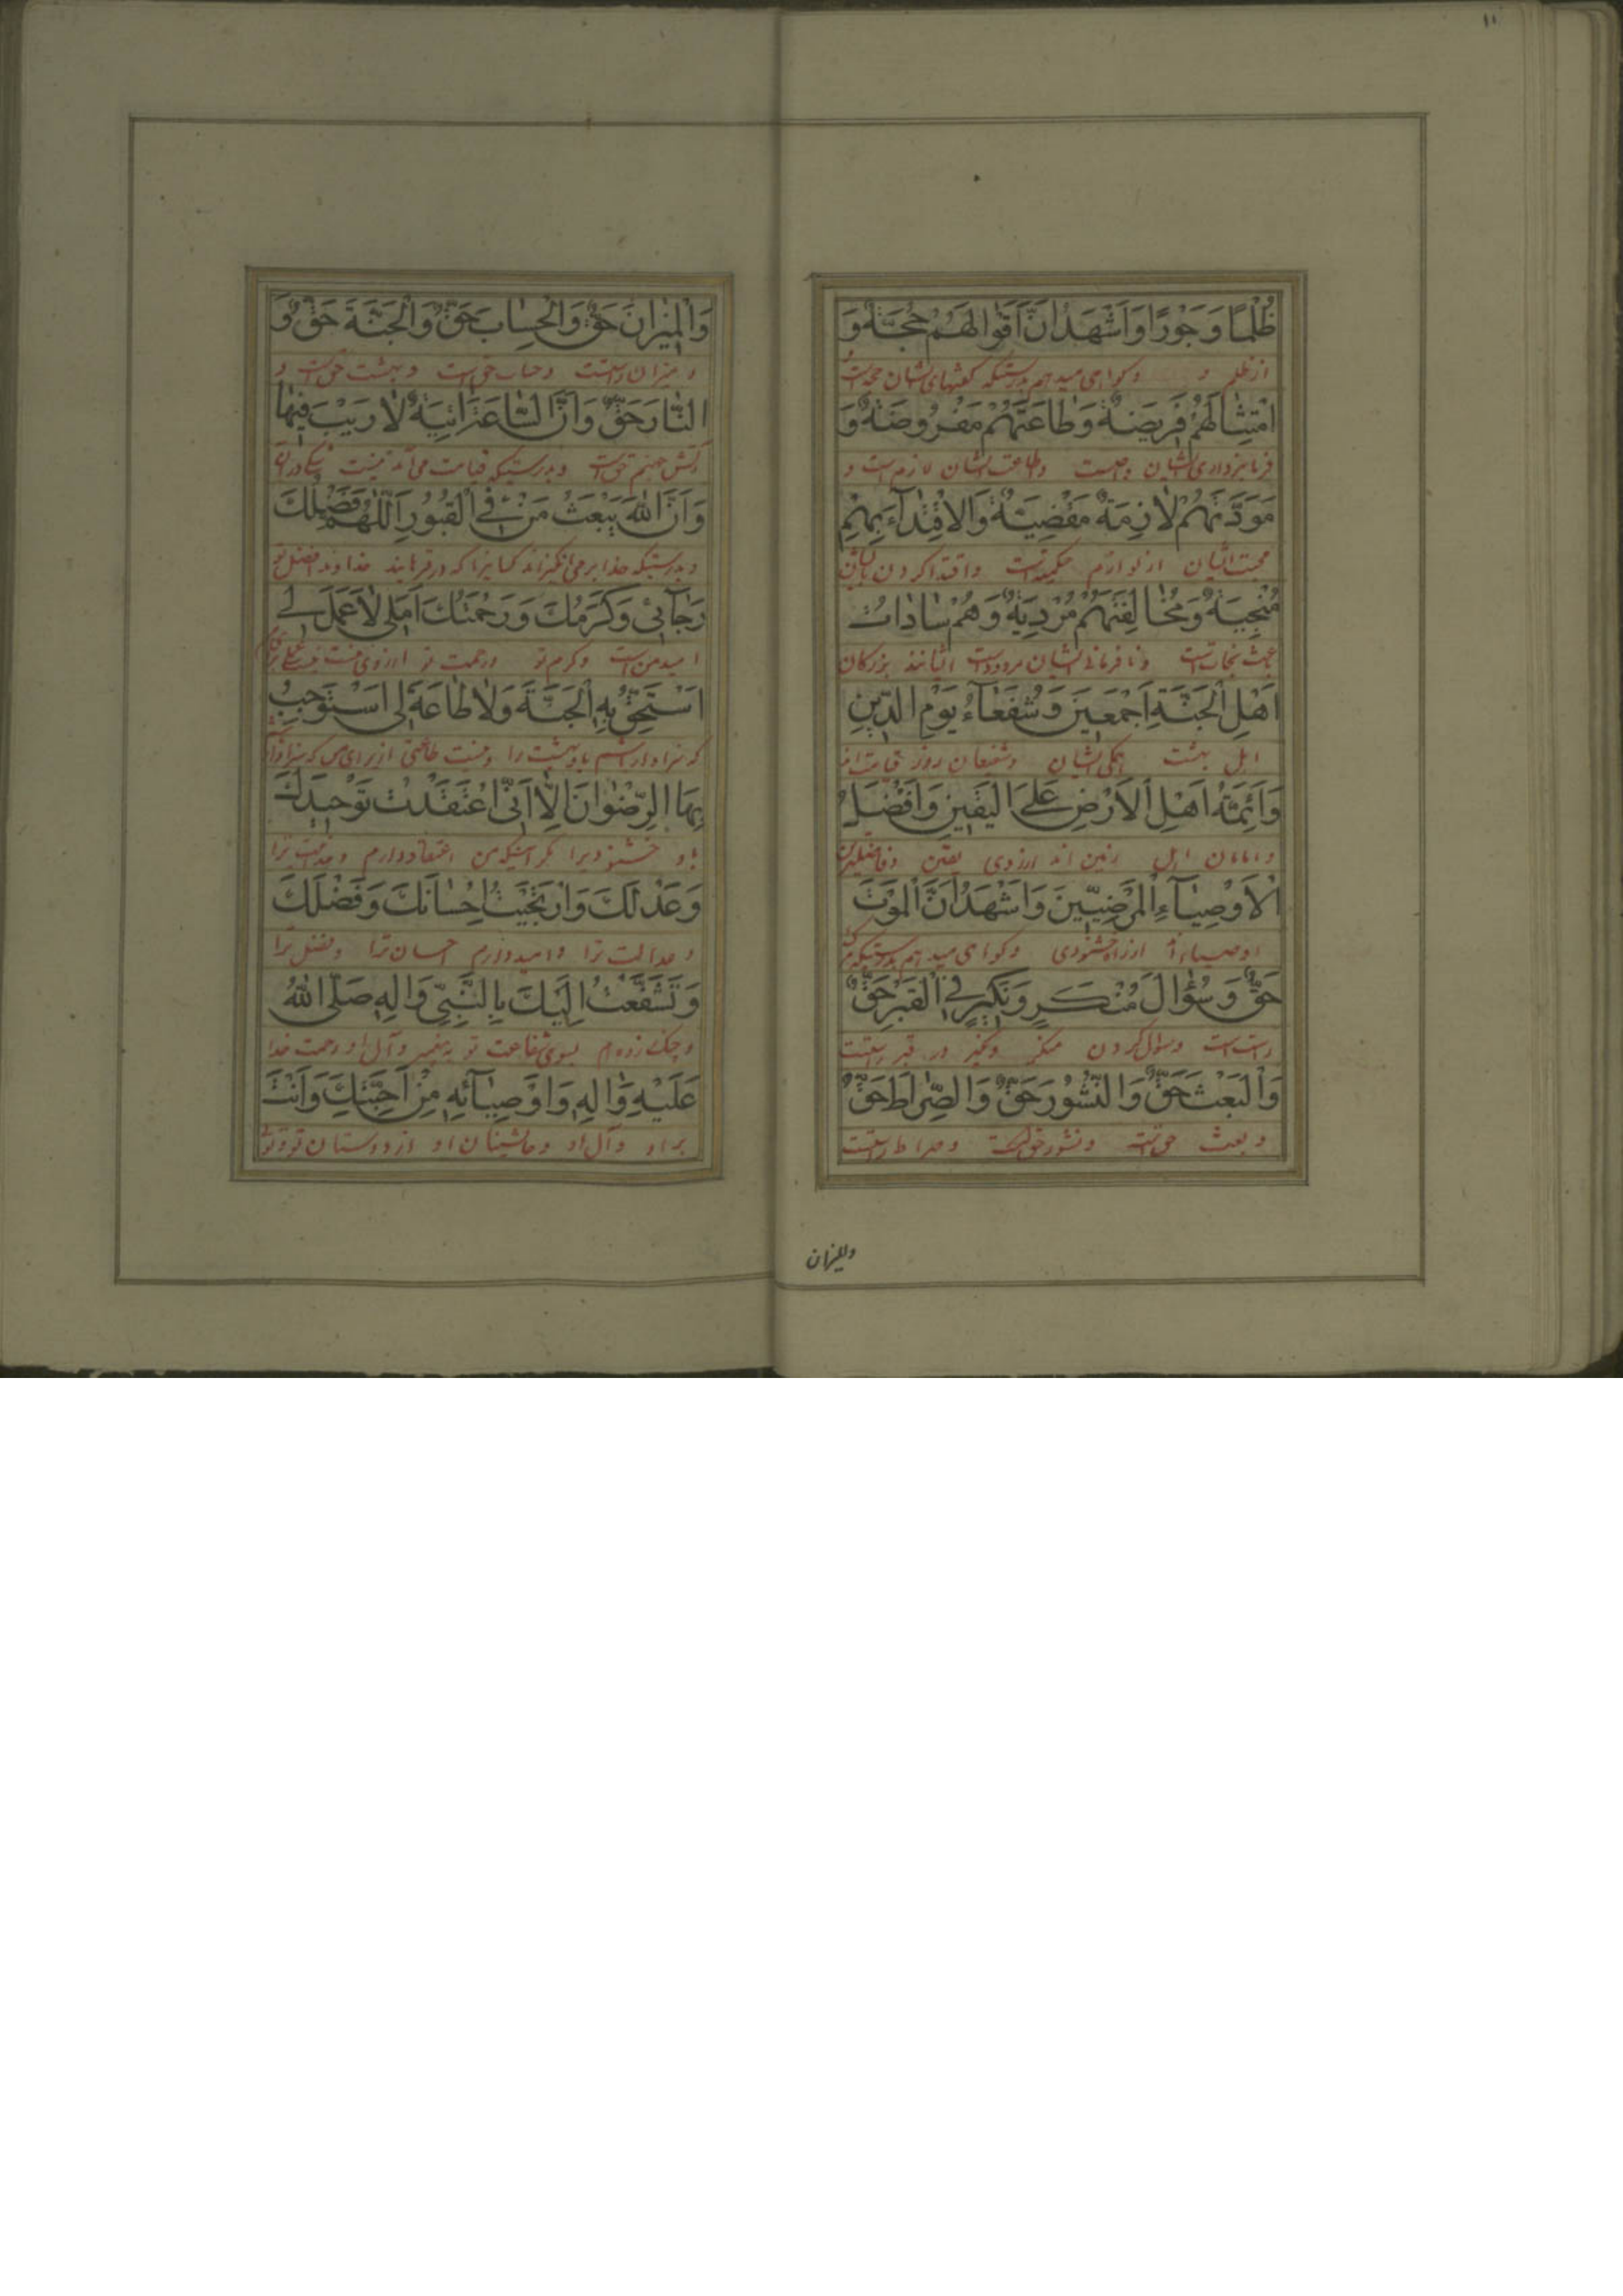 ١١
ظُلْمًا وَجَوْرًا وَاَشْهَدُ اَنَّ اَقْوالَهُمْ حُجَّةٌ وَ
از ظلم و و کواهی میدهم بدرستیکه کفتهای ایشان حجة است
امْتِثالَهُمْ فَریضَةٌ وَطاعَتَهُمْ مَفْرُوضَةٌ وَ
فرمانبرداری ایشان واجبست وطاعت ایشان لازم است و
مَوَدَّتَهُمْ لازِمَةٌ مَقْضِیَّةٌ وَالاِقْتِداءَ بِهِمْ
محبت ایشان از لوازم واقتدا کردن بایشان
مُنْجِیَةٌ وَمُخالِفَتَهُمْ مُرْدِیَةٌ وَهُمْ ساداتُ
نجاتست ونافرمانی ایشان مردودست ایشانند بزرکان
اَهْلِ الْجَنَّةِ اَجْمَعینَ وَشُفَعاءُ یَوْمِ الدّینِ
اهل بهشت همکی ایشان وشفیعان روز قیامت اند
وَاَئِمَّةُ اَهْلِ الْاَرْضِ عَلَی الْیَقینِ وَاَفْضَلُ
وامامان اهل زمین اند ازروی یقین
الْاَوْصِیاءِ الْمَرْضِیّینَ وَاَشْهَدُ اَنَّ الْمَوْتَ
وکواهی میدهم بدرستیکه
حَقٌّ وَسُؤالَ مُنْکَرٍ وَنَکیرٍ فِی الْقَبْرِ حَقٌّ
راست است وسؤال کردن منکر ونکیر در قبر راستست
وَالْبَعْثَ حَقٌّ وَالنُّشُورَ حَقٌّ وَالصِّراطَ حَقٌّ
و بعث حق است ونشور حق است وصراط راستست
والمیزان
وَالْمیزانَ حَقٌّ وَالْحِسابَ حَقٌّ وَالْجَنَّةَ حَقٌّ وَ
ومیزان راستست وحساب حق است وبهشت حق است و
النّارَ حَقٌّ وَاَنَّ السّاعَةَ اتِیَةٌ لارَیْبَ فیها
آتش جهنم حق است وبدرستیکه قیامت می آید نیست شک در آن
وَاَنَّ اللهَ یَبْعَثُ مَنْ فِی الْقُبُورِ اَللّهُمَّ فَضْلُکَ
وبدرستیکه خدا برمی انکیزاند کسانیرا که در قبرهایند خداوندا فضل تو
رَجائی وَکَرَمُکَ وَرَحْمَتُکَ اَمَلی لاعَمَلَ لی
امید من است وکرم تو ورحمت تو ارزوی منست
اَسْتَحِقُّ بِهِ الْجَنَّةَ وَلا طاعَةَ لی اَسْتَوْجِبُ
که سزاوار باشم باو بهشت را ونیست طاعتی از برای من که سزاوار
بِهَا الرِّضْوانَ اِلّا اَنِّی اعْتَقَدْتُ تَوْحیدَکَ
باو خشنودیرا مکر اینکه من اعتقاد دارم
وَعَدْلَکَ وَارْتَجَیْتُ اِحْسانَکَ وَفَضْلَکَ
وعدالت ترا وامیدوارم احسان ترا وفضل ترا
وَتَشَفَّعْتُ اِلَیْکَ بِالنَّبِیِّ وَالِهِ صَلَّی اللهُ
بسوی شفاعت تو به پیغمبر وآل او رحمت خدا
عَلَیْهِ وَالِهِ وَاَوْصِیائِهِ مِنْ اَحِبَّتِکَ وَاَنْتَ
بر او وآل او وجانشینان او از دوستان تو وتو